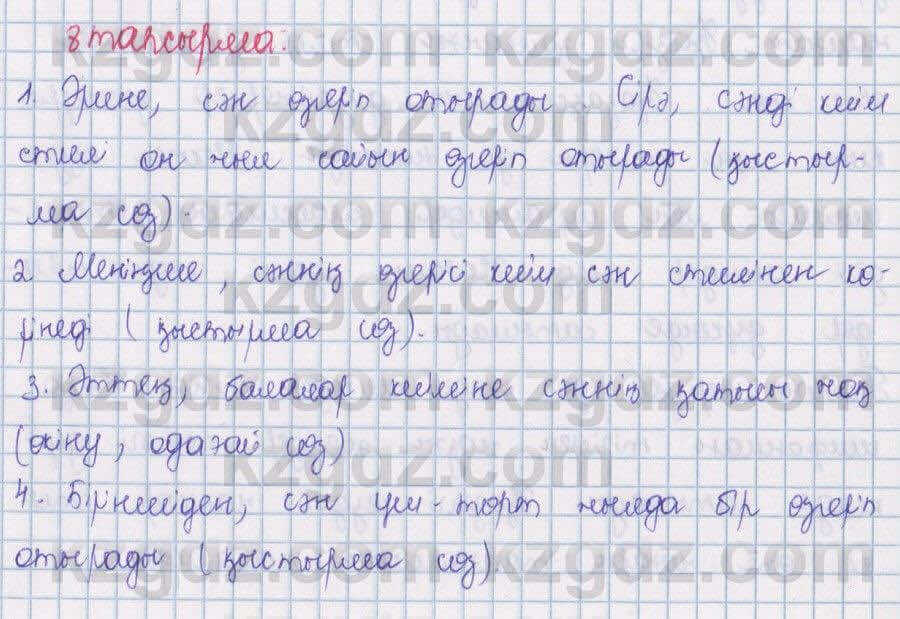 8 тапсырма:
1. Әрине, сән өзгеріп отырады. Сірә, сәнді киім
стилі он жыл сайын өзгеріп отырады (қыстыр-
ма сөз).
2 Меніңше, сәннің өзгерісі киім сән стилінен кө-
рінеді (қыстырма сөз).
3. Әттең, балалар киіміне сәннің қатысы жоқ
(өкіну, одағай сөз)
4. Біріншіден, сән үш-төрт жылда бір өзгеріп
отырады (қыстырма сөз).